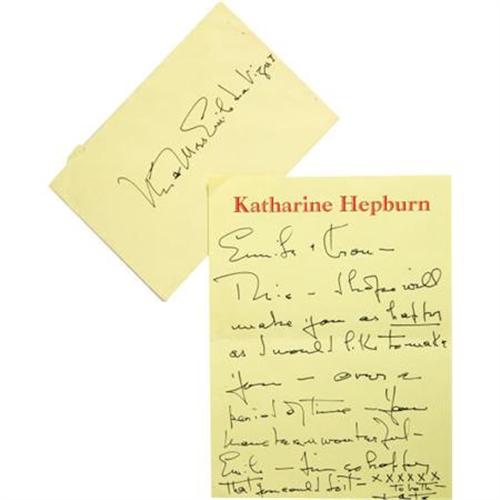 Mr & Mrs Emile La Vigne
Katharine Hepburn
Emile & Tron –
This – I hope will
make you as happy
as I would like to make
you – over a
period of time – You
have been wonderful –
Emile – I'm so happy
that you could do it – x x x x x x
To both